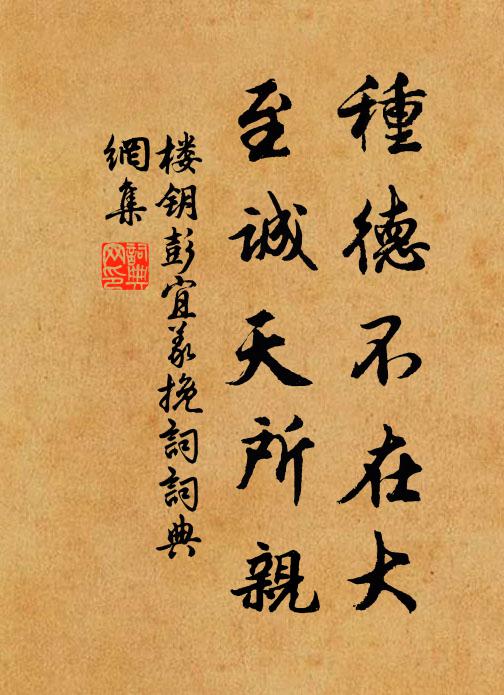 種德不在大
至誠天所親
楼钥彭宜義挽詞詞典
網集
詞典
网印